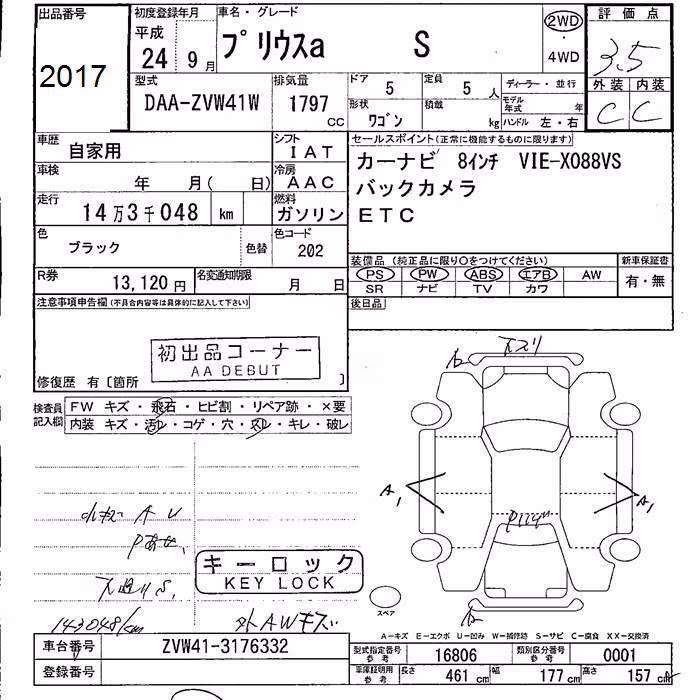 出品番号 初度登録年月 車名・グレード 2WD 評価点
2017 平成 24 9月 プリウスa S ・ 4WD 3.5
型式 排気量 ドア 定員 ディーラー・並行 外装 内装
DAA-ZVW41W 1797 CC 5 5人 モデル年式 年 C C
形状 ワゴン 積載 kg ハンドル 左・右
車歴 自家用 シフト IAT セールスポイント(正常に機能するものに限ります)
車検 年 月( 日) 冷房 AAC カーナビ 8インチ VIE-X088VS
走行 14万3千048 km 燃料 ガソリン バックカメラ
ETC
色 ブラック 色替 色コード 202
装備品(純正品に限り○をつけてください) 新車保証書
PS PW ABS エアB AW 有・無
SR ナビ TV カワ
R券 13,120円 名変通知期限 月 日
後日品
注意事項申告欄(不具合内容等は具体的に記入して下さい)
初出品コーナー
AA DEBUT
修復歴 有〔箇所 〕
検査員記入欄 FW キズ・飛石・ヒビ割・リペア跡・×要
内装 キズ・汚レ・コゲ・穴・スレ・キレ・破レ
下スリ
A1 A1
A U
キーロック
KEY LOCK
スペア
143048km 外AWキズ
A-キズ E-エクボ U-凹み W-補修跡 S-サビ C-腐食 XX-交換済
車台番号 ZVW41-3176332 型式指定番号 参考 16806 類別区分番号 参考 0001
登録番号 車庫証明用 参考 長さ 461cm 幅 177cm 高さ 157cm